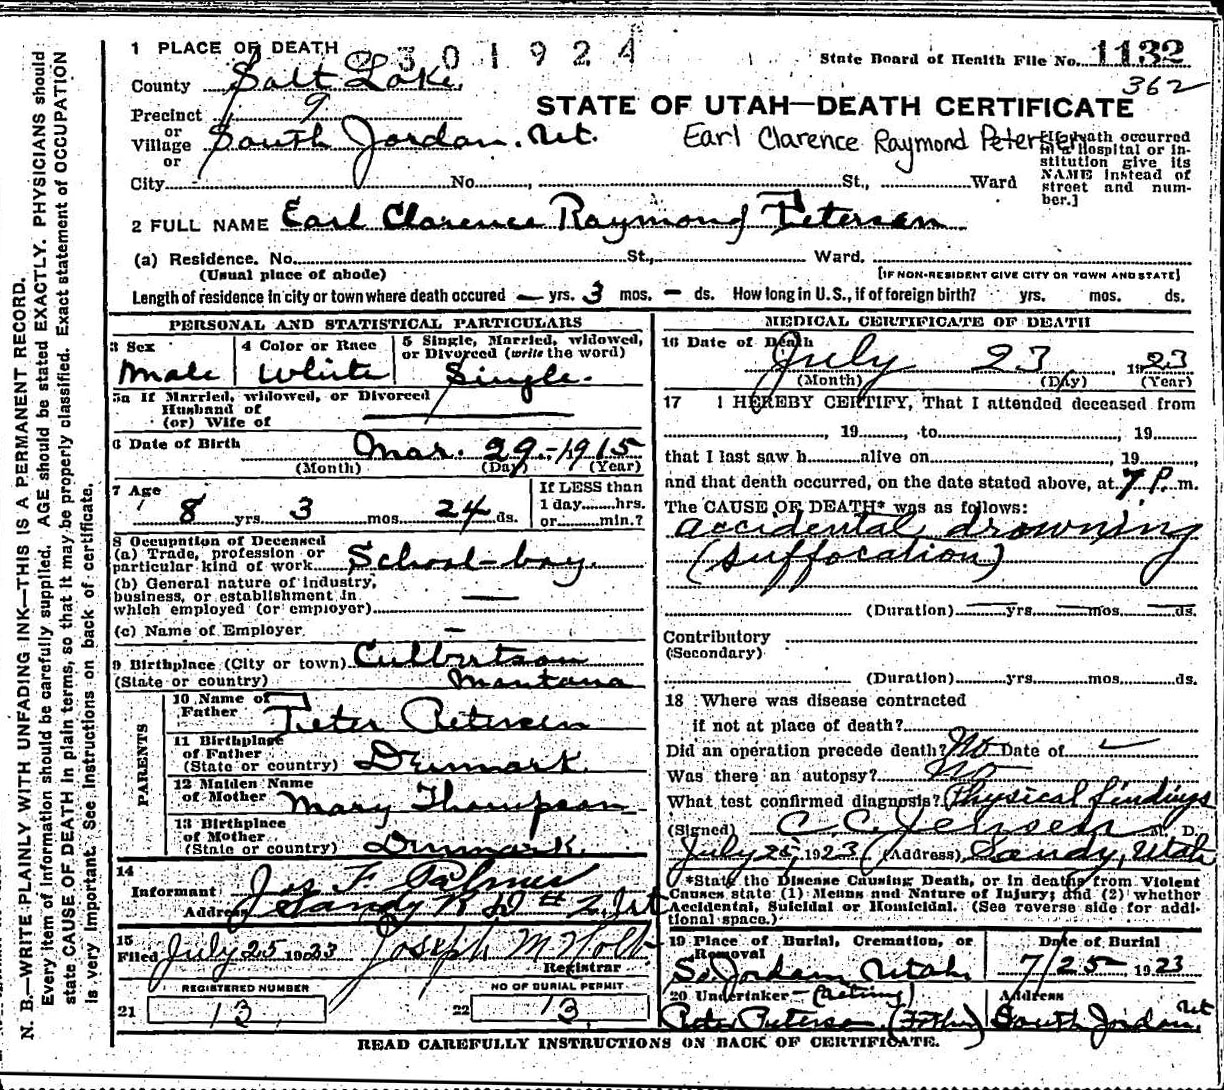 1 PLACE OF DEATH 2301924
State Board of Health File No. 1132
County Salt Lake
362
Precinct 9
STATE OF UTAH—DEATH CERTIFICATE
or
Village South Jordan. Ut.
Earl Clarence Raymond Petersen
or
[If death occurred in a hospital or institution give its NAME instead of street and number.]
City No. , St., Ward
2 FULL NAME Earl Clarence Raymond Petersen
(a) Residence. No. St., Ward.
(Usual place of abode) [IF NON-RESIDENT GIVE CITY OR TOWN AND STATE]
Length of residence in city or town where death occured — yrs. 3 mos. — ds. How long in U. S., if of foreign birth? yrs. mos. ds.
PERSONAL AND STATISTICAL PARTICULARS
3 Sex 4 Color or Race 5 Single, Married, widowed,
or Divorced (write the word)
Male White Single.
5a If Married, widowed, or Divorced
Husband of
(or) Wife of
6 Date of Birth Mar. 29-1915
(Month) (Day) (Year)
7 Age If LESS than
8 yrs 3 mos 24 ds. 1 day hrs.
or min.?
8 Occupation of Deceased
(a) Trade, profession or
particular kind of work School-boy.
(b) General nature of industry,
business, or establishment in
which employed (or employer) —
(c) Name of Employer —
9 Birthplace (City or town) Culbertson
(State or country) Montana
PARENTS
10 Name of
Father Peter Petersen
11 Birthplace
of Father
(State or country) Denmark.
12 Maiden Name
of Mother Mary Thompson
13 Birthplace
of Mother
(State or country) Denmark.
14
Informant Jos F. Palmer
Address Sandy R D # 2, Ut
15
Filed July 25 1923 Joseph M Holt
Registrar
REGISTERED NUMBER NO OF BURIAL PERMIT
21 13 22 13
MEDICAL CERTIFICATE OF DEATH
16 Date of Death
July 23 1923
(Month) (Day) (Year)
17 I HEREBY CERTIFY, That I attended deceased from
, 19 , to , 19
that I last saw h alive on , 19 ,
and that death occurred, on the date stated above, at 7 P. m.
The CAUSE OF DEATH* was as follows:
accidental drowning
(suffocation)
(Duration) — yrs. — mos. — ds.
Contributory
(Secondary)
(Duration) yrs. mos. ds.
18 Where was disease contracted
if not at place of death?
Did an operation precede death? No Date of
Was there an autopsy? No
What test confirmed diagnosis? Physical findings
(Signed) C. C. Jensen M. D.
July 25, 1923 (Address) Sandy, Utah
*State the Disease Causing Death, or in deaths from Violent
Causes state (1) Means and Nature of Injury; and (2) whether
Accidental, Suicidal or Homicidal. (See reverse side for addi-
tional space.)
19 Place of Burial, Cremation, or Date of Burial
Removal
So. Jordan Utah. 7/25- 1923
20 Undertaker— (acting) Address
Peter Peterson (Father) South Jordan, Ut
READ CAREFULLY INSTRUCTIONS ON BACK OF CERTIFICATE.
N. B.—WRITE PLAINLY WITH UNFADING INK—THIS IS A PERMANENT RECORD.
Every item of information should be carefully supplied. AGE should be stated EXACTLY. PHYSICIANS should
state CAUSE OF DEATH in plain terms, so that it may be properly classified. Exact statement of OCCUPATION
is very important. See instructions on back of certificate.